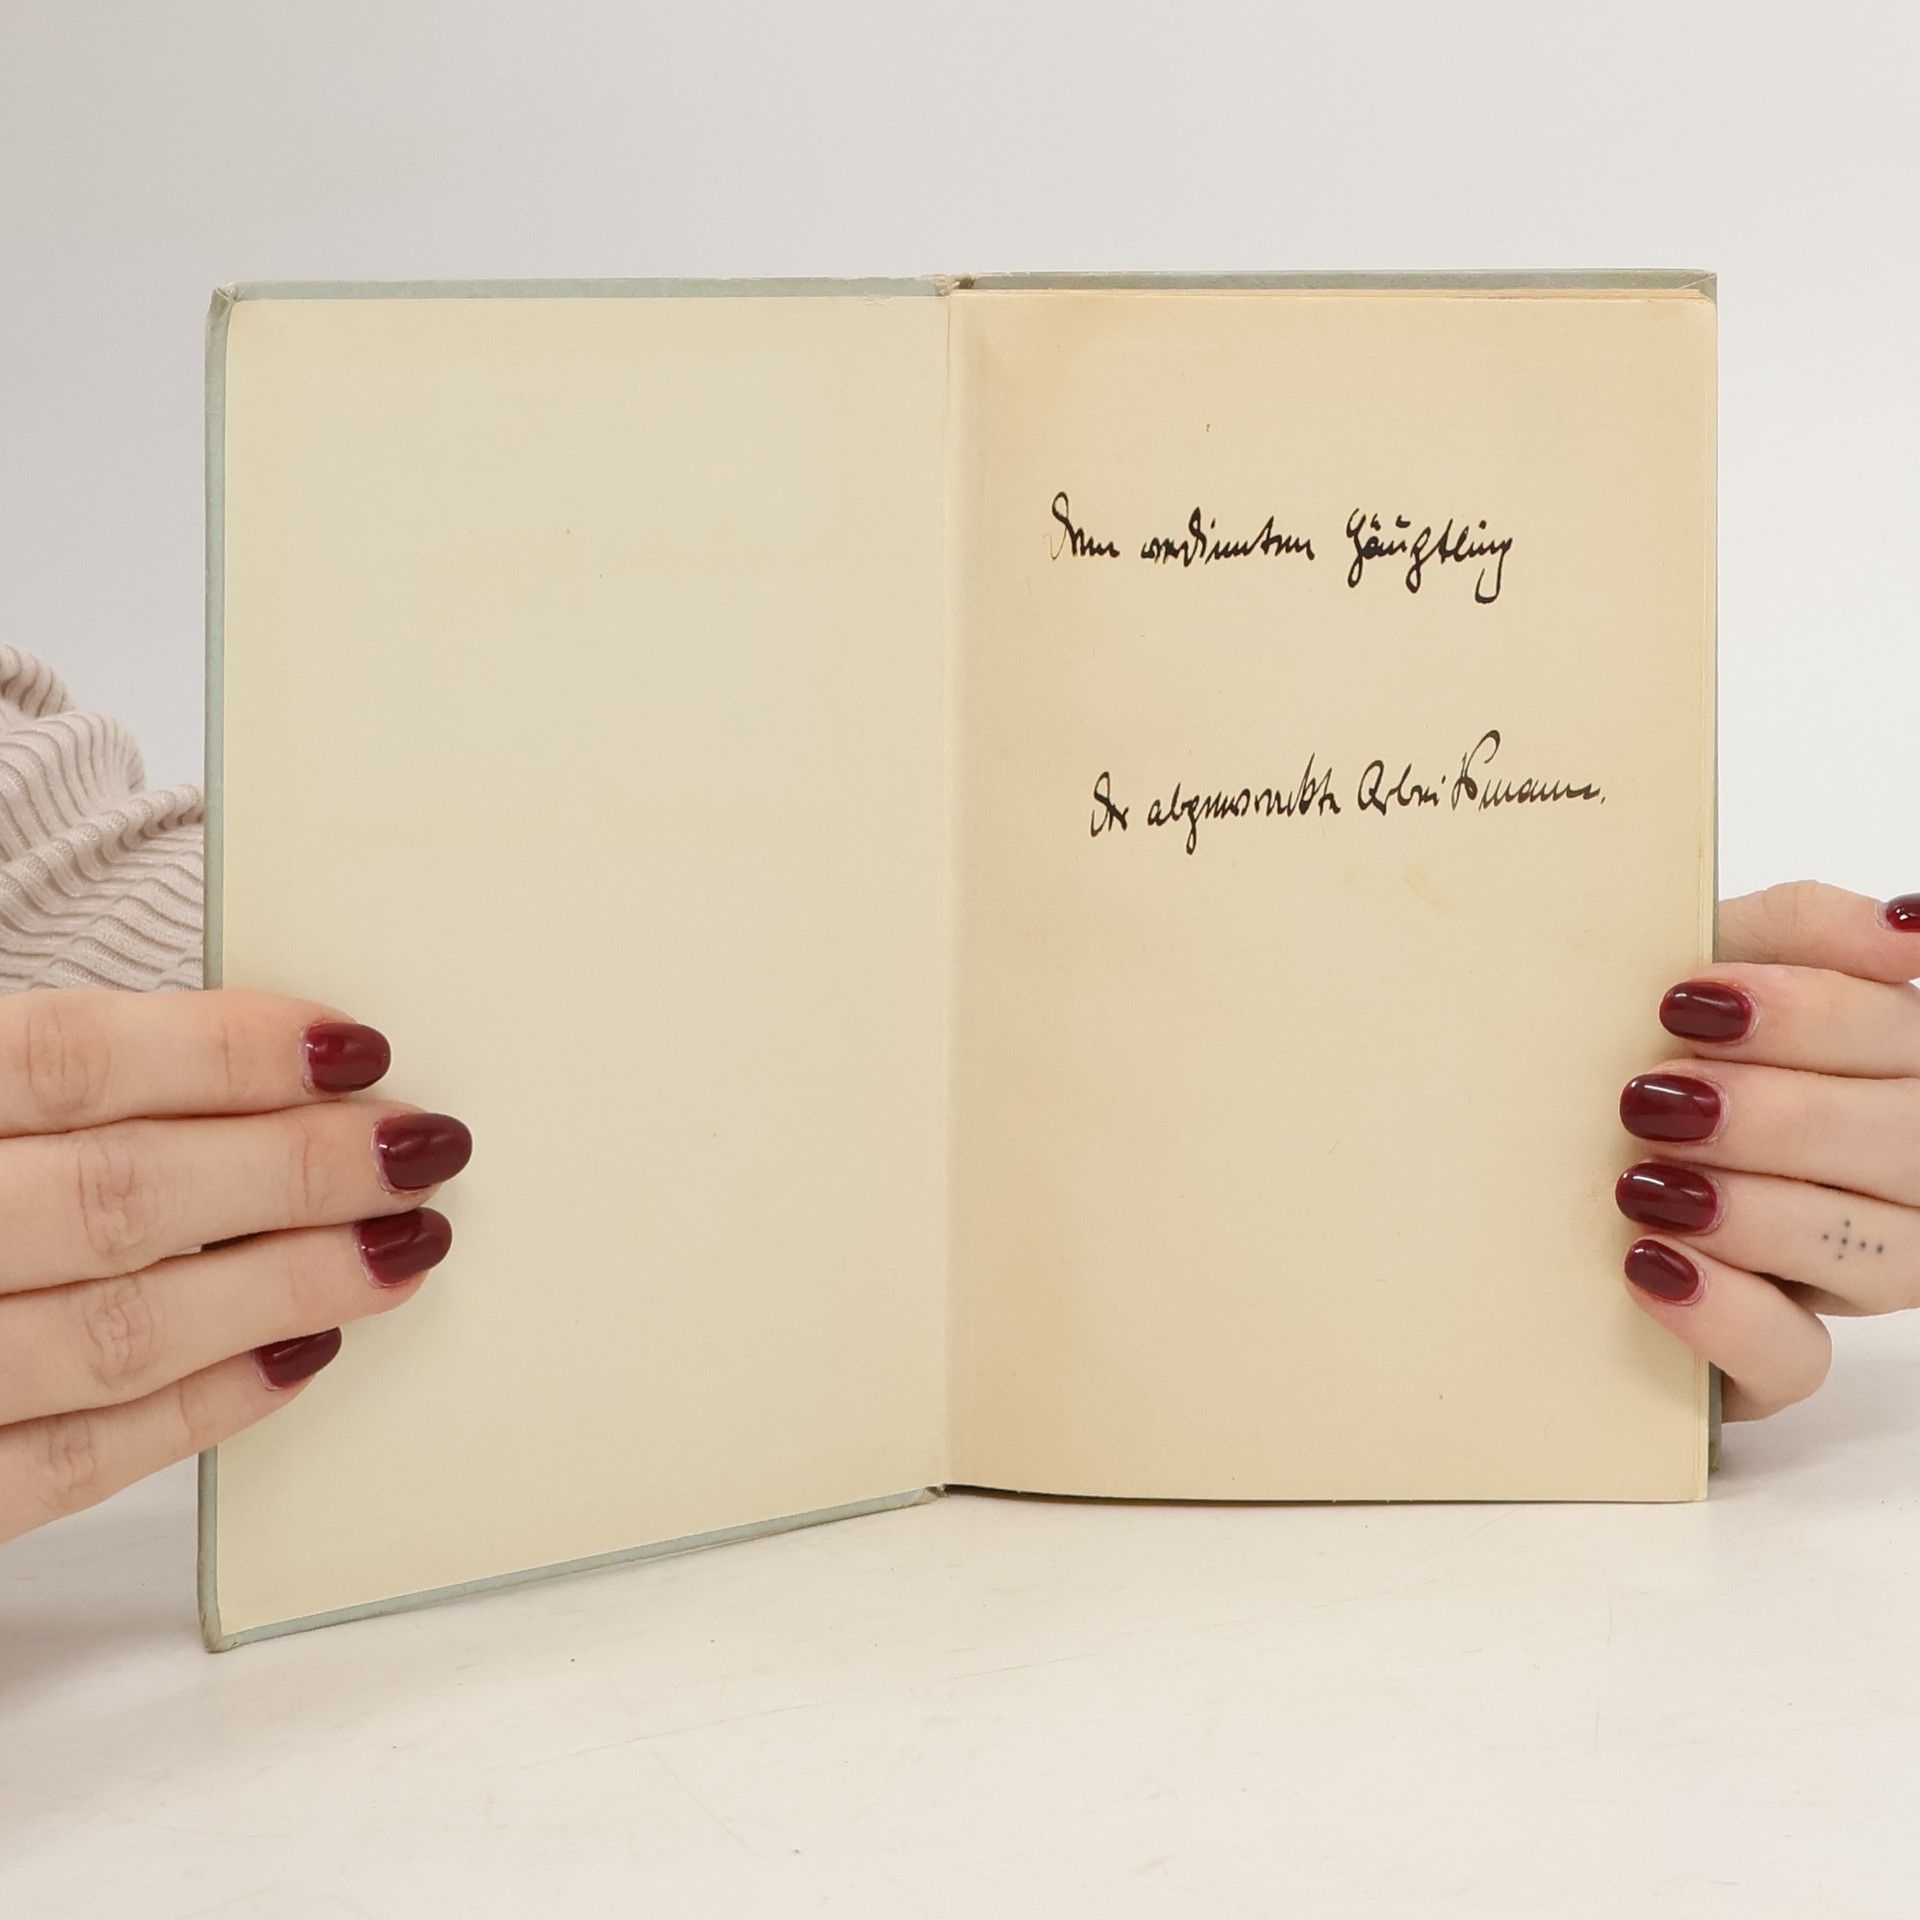 Dem verdienten Häuptling
Der abgewrackte Arbeitsmann.